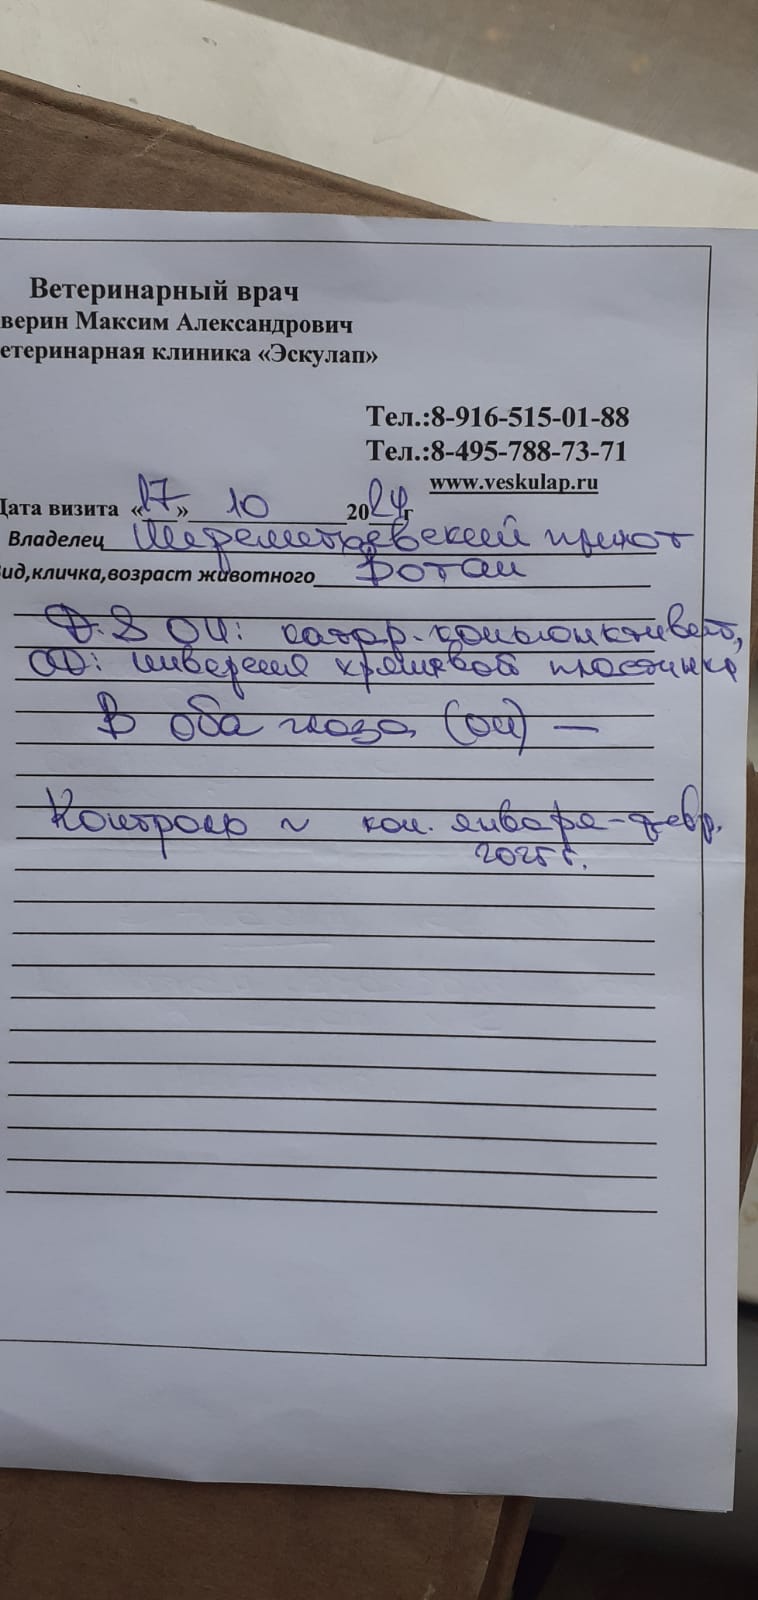 Ветеринарный врач
верин Максим Александрович
етеринарная клиника «Эскулап»
Тел.:8-916-515-01-88
Тел.:8-495-788-73-71
www.veskulap.ru
Дата визита «17» 10 2024г
Владелец Шереметьевский приют
вид,кличка,возраст животного Ротан
D.S OU: катар. конъюнктивит,
OD: инверсия хрящевой пластинки
В оба глаза (OU) —
Контроль ~ кон. января-февр.
2025г.